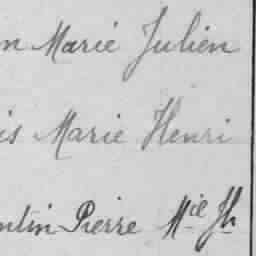 n Marie Julien
is Marie Henri
ntin Pierre Mie Jh